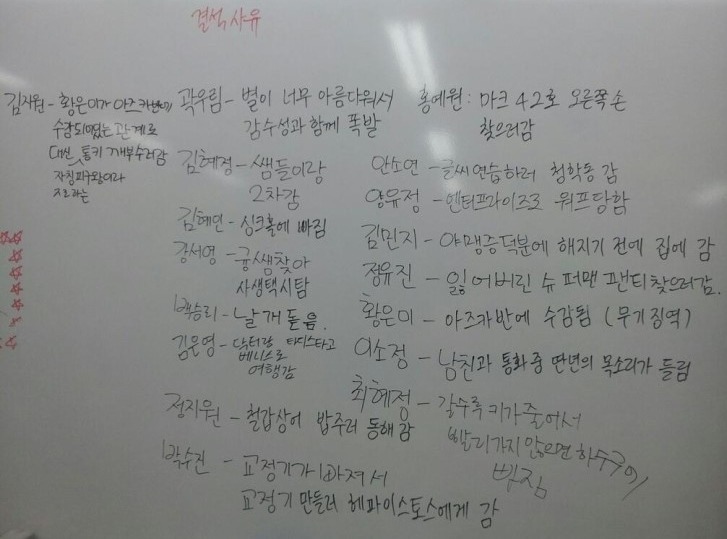 결석사유
김지원 - 황은미가 아즈카반에
수감되어있는 관계로
대신 통키 깨부수러감
자칭피구왕이라
지르라는
곽우림 - 별이 너무 아름다워서
감수성과 함께 폭발
김혜정 - 쌤들이랑
2차감
김혜민 - 싱크홀에 빠짐
강서영 - 귱쌤찾아
사생택시탐
백승리 - 날개 돋음.
김은영 - 닥터랑 타디스타고
베니스로
여행감
정지원 - 철갑상어 밥주러 동해 감
박수진 - 교정기가 빠져서
교정기 만들러 헤파이스토스에게 감
홍예원 : 마크 42호 오른쪽 손
찾으러감
안소연 - 글씨연습하러 청학동 감
양유정 - 엔터프라이즈로 워프당함
김민지 - 야맹증덕분에 해지기 전에 집에 감
정유진 - 잃어버린 슈퍼맨 팬티찾으러감.
황은미 - 아즈카반에 수감됨 (무기징역)
이소정 - 남친과 통화 중 딴년의 목소리가 들림
최혜정 - 갈수록 키가 줄어서
빨리가지 않으면 하수구에
빠짐